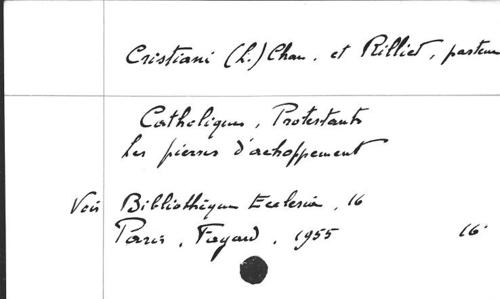 Cristiani (L.) Chan. et Rilliet, pasteur
Catholiques, Protestants
Les pierres d'achoppement
Voir Bibliothèque Ecclesia, 16
Paris, Fayard, 1955 16°